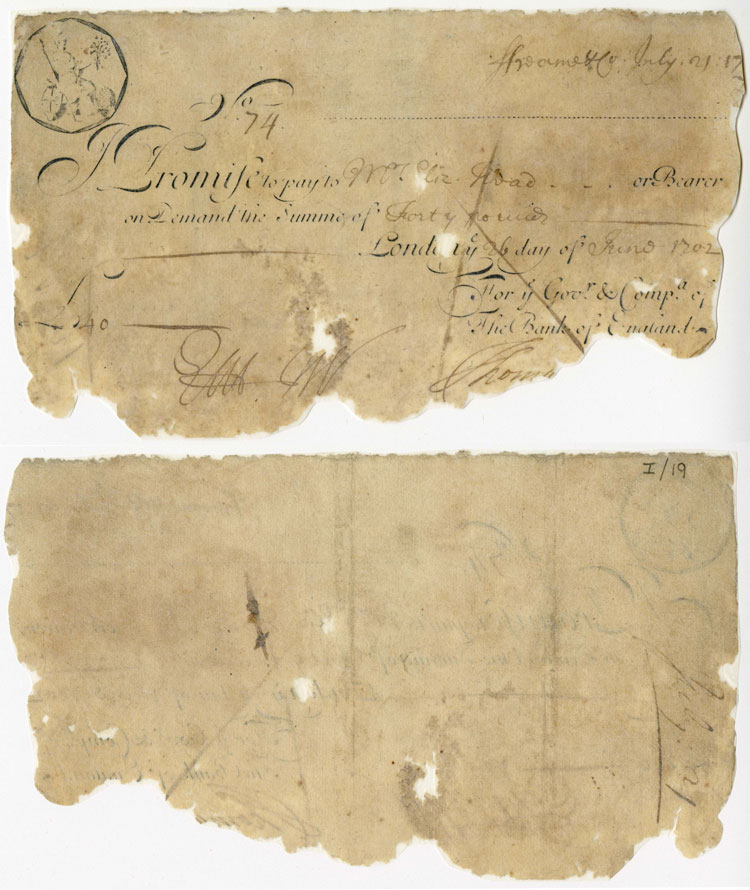 ffreame & Co. July. 21. 17
No. 74
I Promise to pay to Mr. Eliz. Head . . . or Bearer
on Demand the Summe of Forty pounds
London ye 26 day of June 1702
For ye Govr. & Compa. of
The Bank of England.
£40
Thoma
I/19
July. 21